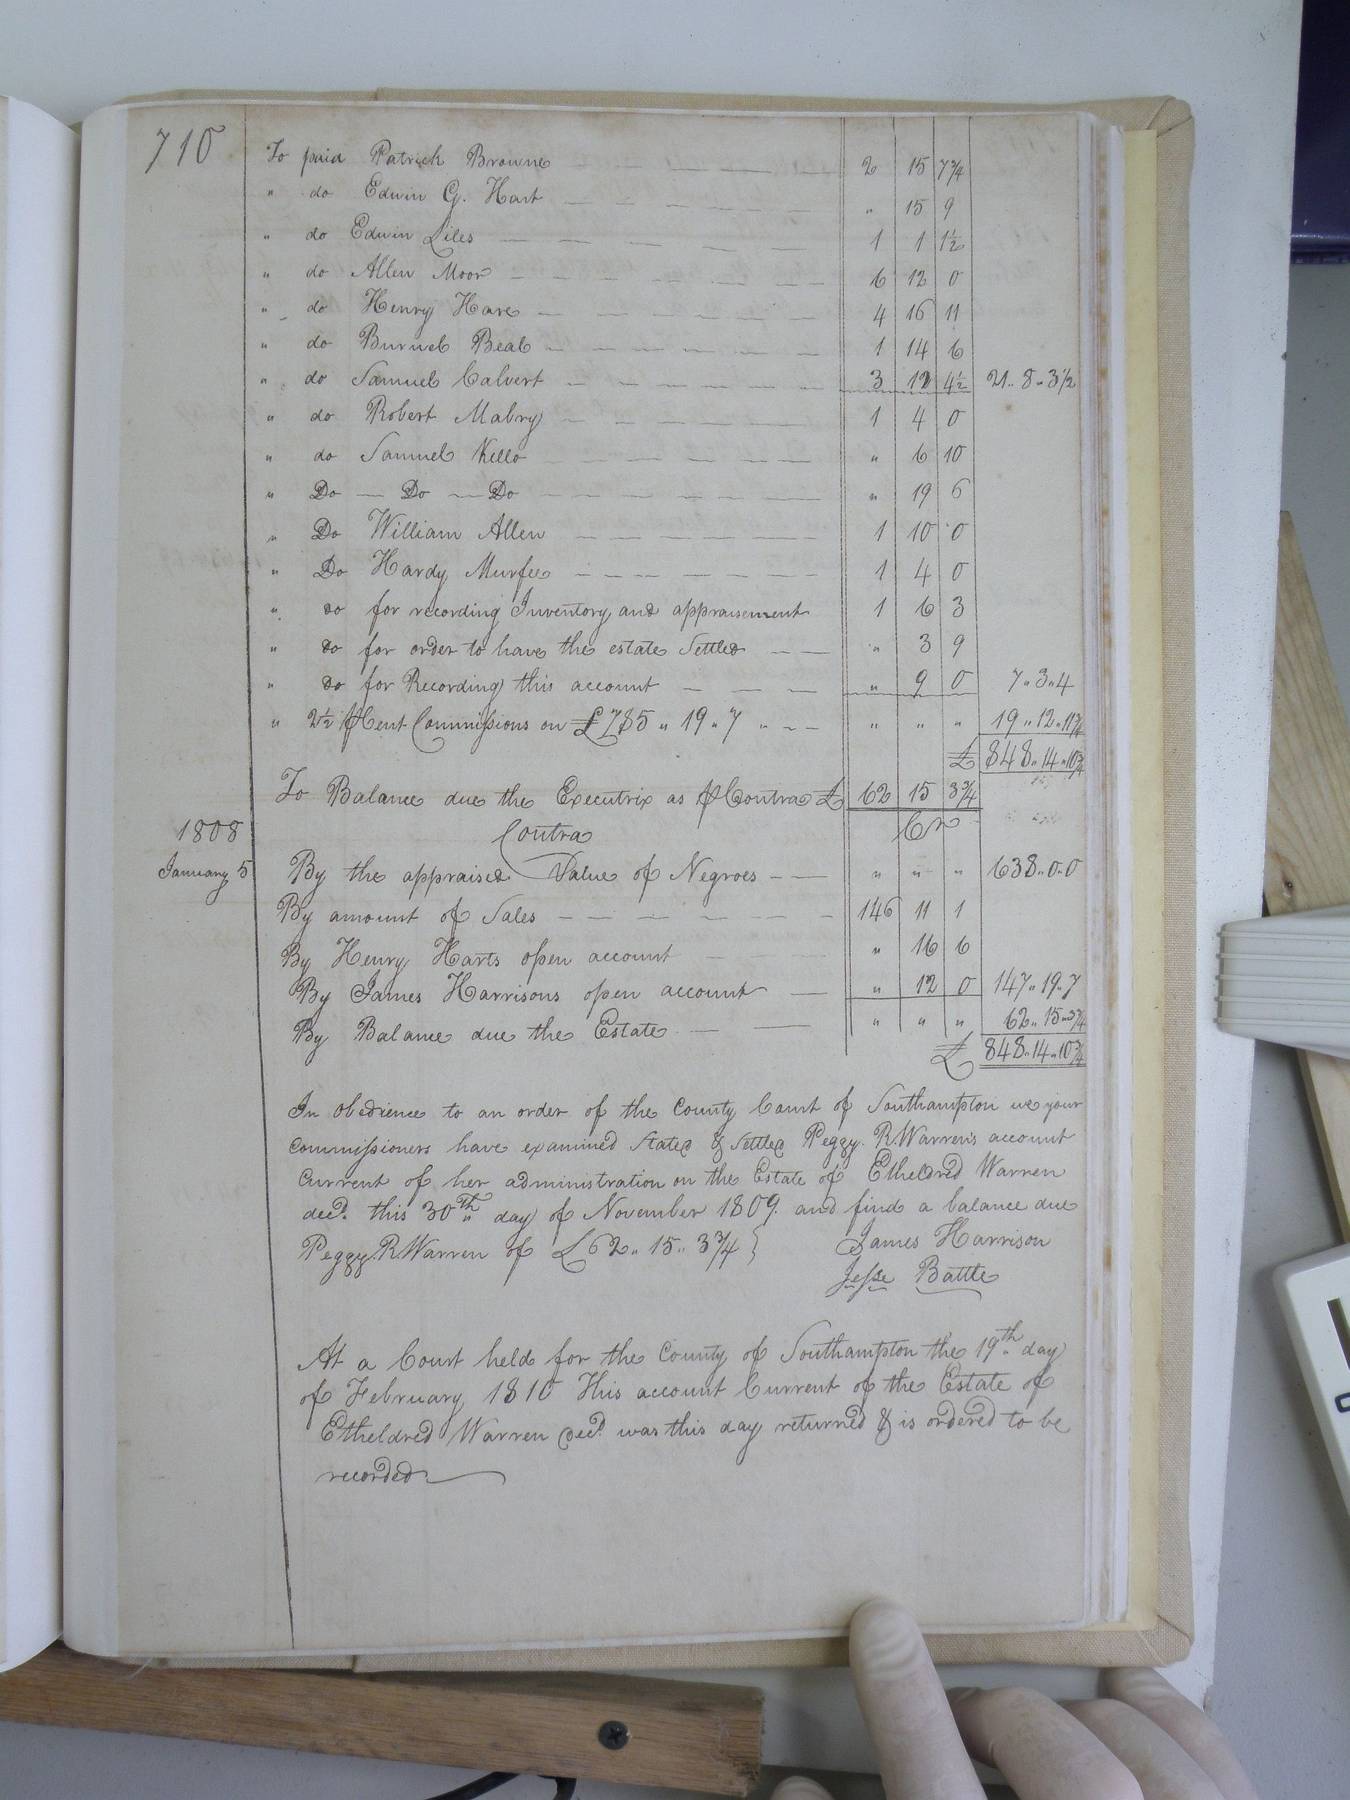 710
To paid Patrick Browne 2 15 7¾
" do Edwin G. Hart " 15 9
" do Edwin Liles 1 1 1½
" do Allen Moor 6 12 0
" do Henry Hare 4 16 11
" do Burwel Beal 1 14 6
" do Samuel Calvert 3 12 4½ 21.. 8.. 3½
" do Robert Mabry 1 4 0
" do Samuel Kello " 6 10
" Do — Do — Do " 19 6
" Do William Allen 1 10 0
" Do Hardy Murfee 1 4 0
" do for recording Inventory and appraisement 1 6 3
" do for order to have the estate Settled " 3 9
" do for Recording this account " 9 0 7.. 3.. 4
" 2½ ⅌Cent Commissions on £785 .. 19 .. 7 " " " 19 .. 12 .. 11¾
£ 848.. 14 .. 10¾
To Balance due the Executrix as ⅌ Contra £ 62 15 3¾
1808 Contra Cr
January 5 By the appraised Value of Negroes " " " 638.. 0.. 0
By amount of Sales 146 11 1
By Henry Harts open account " 16 6
By James Harrisons open account " 12 0 147.. 19.. 7
By Balance due the Estate " " " 62.. 15.. 3¾
£ 848.. 14.. 10¾
In obedience to an order of the County Court of Southampton we your
commissioners have examined Stated & Settled Peggy. R. Warren's account
Current of her administration on the Estate of Etheldred Warren
decd. this 30th day of November 1809. and find a balance due
Peggy R. Warren of £62.. 15.. 3¾ } James Harrison
Jesse Battle
At a Court held for the County of Southampton the 19th day
of February 1810 This account Current of the Estate of
Etheldred Warren decd. was this day returned & is ordered to be
recorded